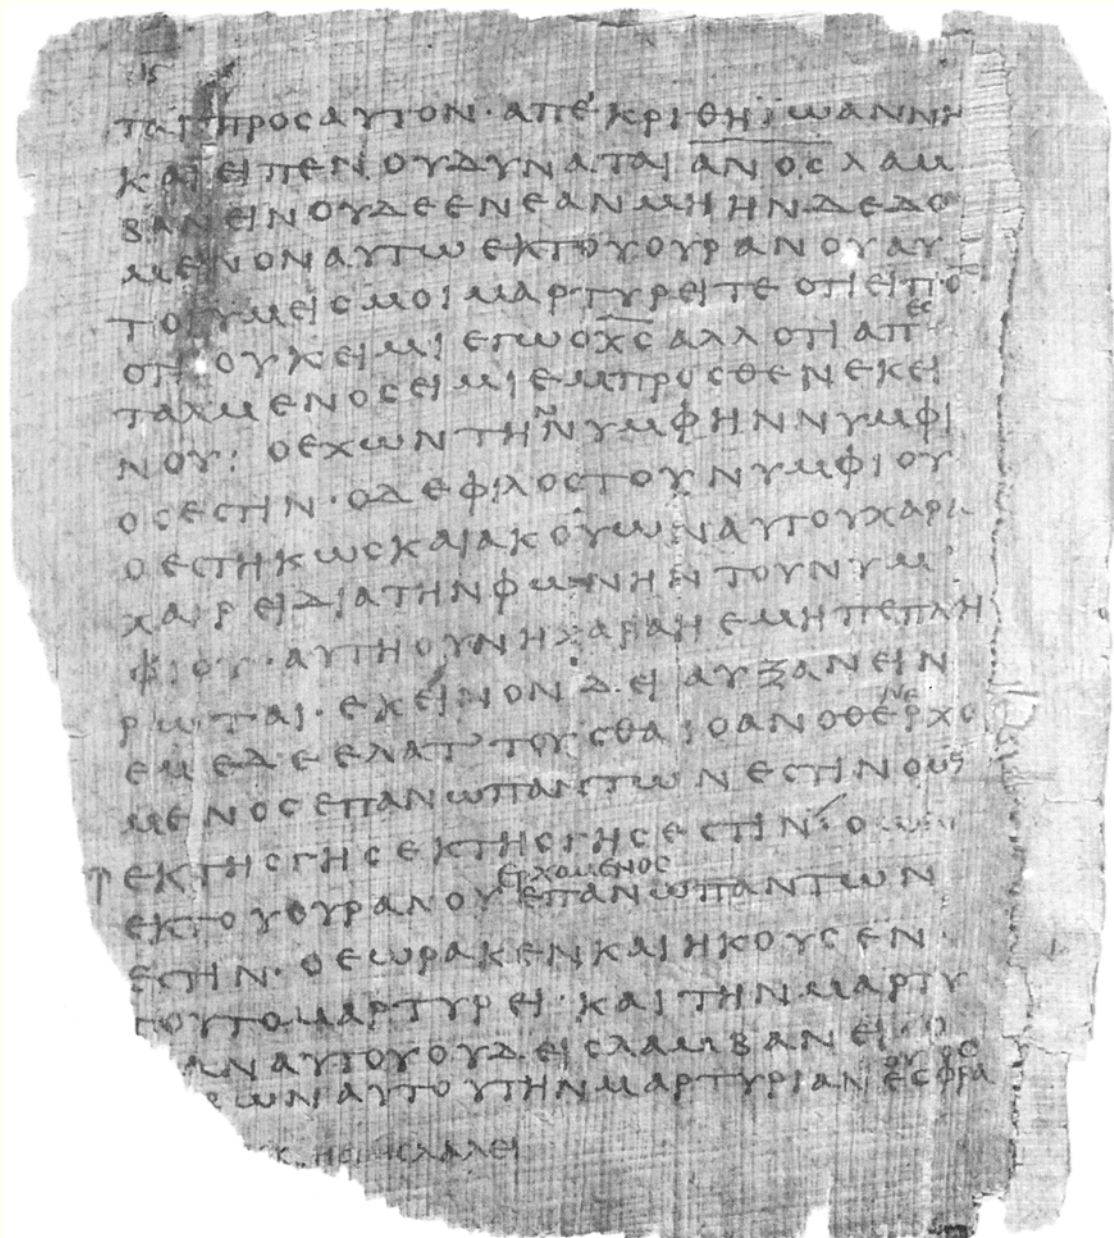 ιϛ
ται προσ αυτον· απεκριθη ϊωαννη
και ειπεν ου δυναται ανος λαμ
βανειν ουδε εν εαν μη ην δεδο
μενον αυτω εκ του ουρανου αυ
τοι υμεις μοι μαρτυρειτε οτι ειπο
οτι ουκ ειμι εγω ο χς αλλ οτι απες
ταλμενος ειμι εμπροσθεν εκει
νου: ο εχων την νυμφην νυμφι
ος εστιν· ο δε φιλος του νυμφιου
ο εστηκως και ακουων αυτου χαρα
χαιρει δια την φωνην του νυμ
φιου· αυτη ουν η χαρα η εμη πεπλη
ρωται· εκεινον δει αυξανειν
εμε δε ελαττουσθαι ο ανοθεν ερχο
μενος επανω παντων εστιν ο ων
εκ της γης εκ της γης εστιν· ο
ερχομενος
εκ του ουρανου επανω παντων
εστιν· ο εωρακεν και ηκουσεν
τουτο μαρτυρει· και την μαρτυ
αν αυτου ουδεις λαμβανει· ο
ων αυτου την μαρτυριαν ουτος εσφρα
λαλει